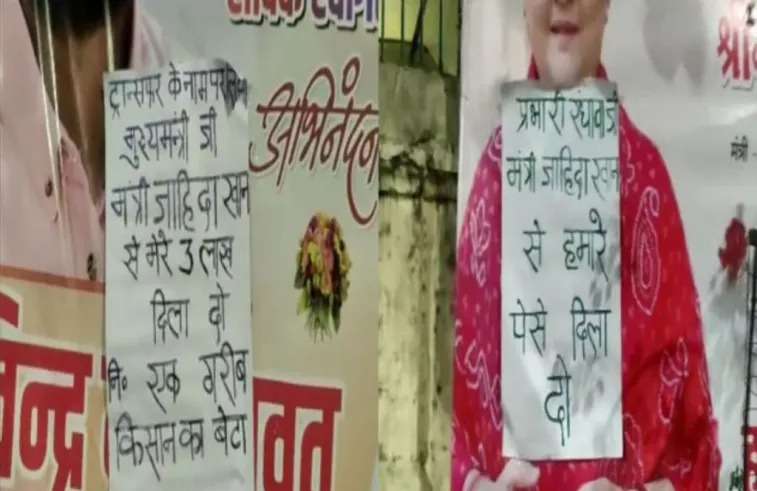 ट्रान्सफर के नाम पर
मुख्यमंत्री जी
मंत्री जाहिदा खान
से मेरे 3 लाख
दिला दो
नि॰ एक गरीब
किसान का बेटा
अभिनंदन
प्रभारी रंधावा जी
मंत्री जाहिदा खान
से हमारे
पैसे दिला
दो
मंत्री